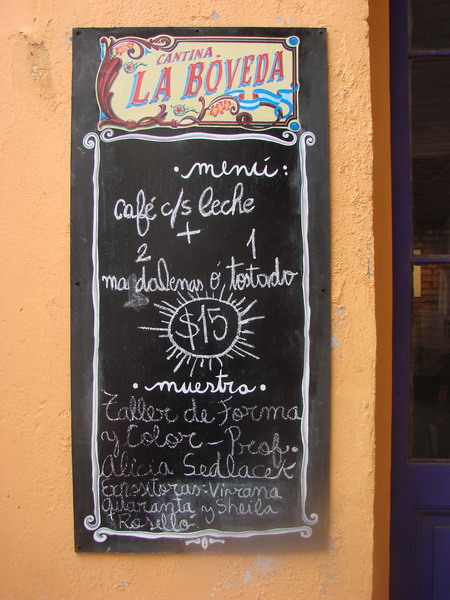 CANTINA
LA BÓVEDA
• menú:
café c/s leche
+
2 1
magdalenas ó tostado
$15
• muestra •
Taller de Forma
y Color - Prof.
Alicia Sedlacek
Expositoras: Viviana
Quaranta y Sheila
Roselló